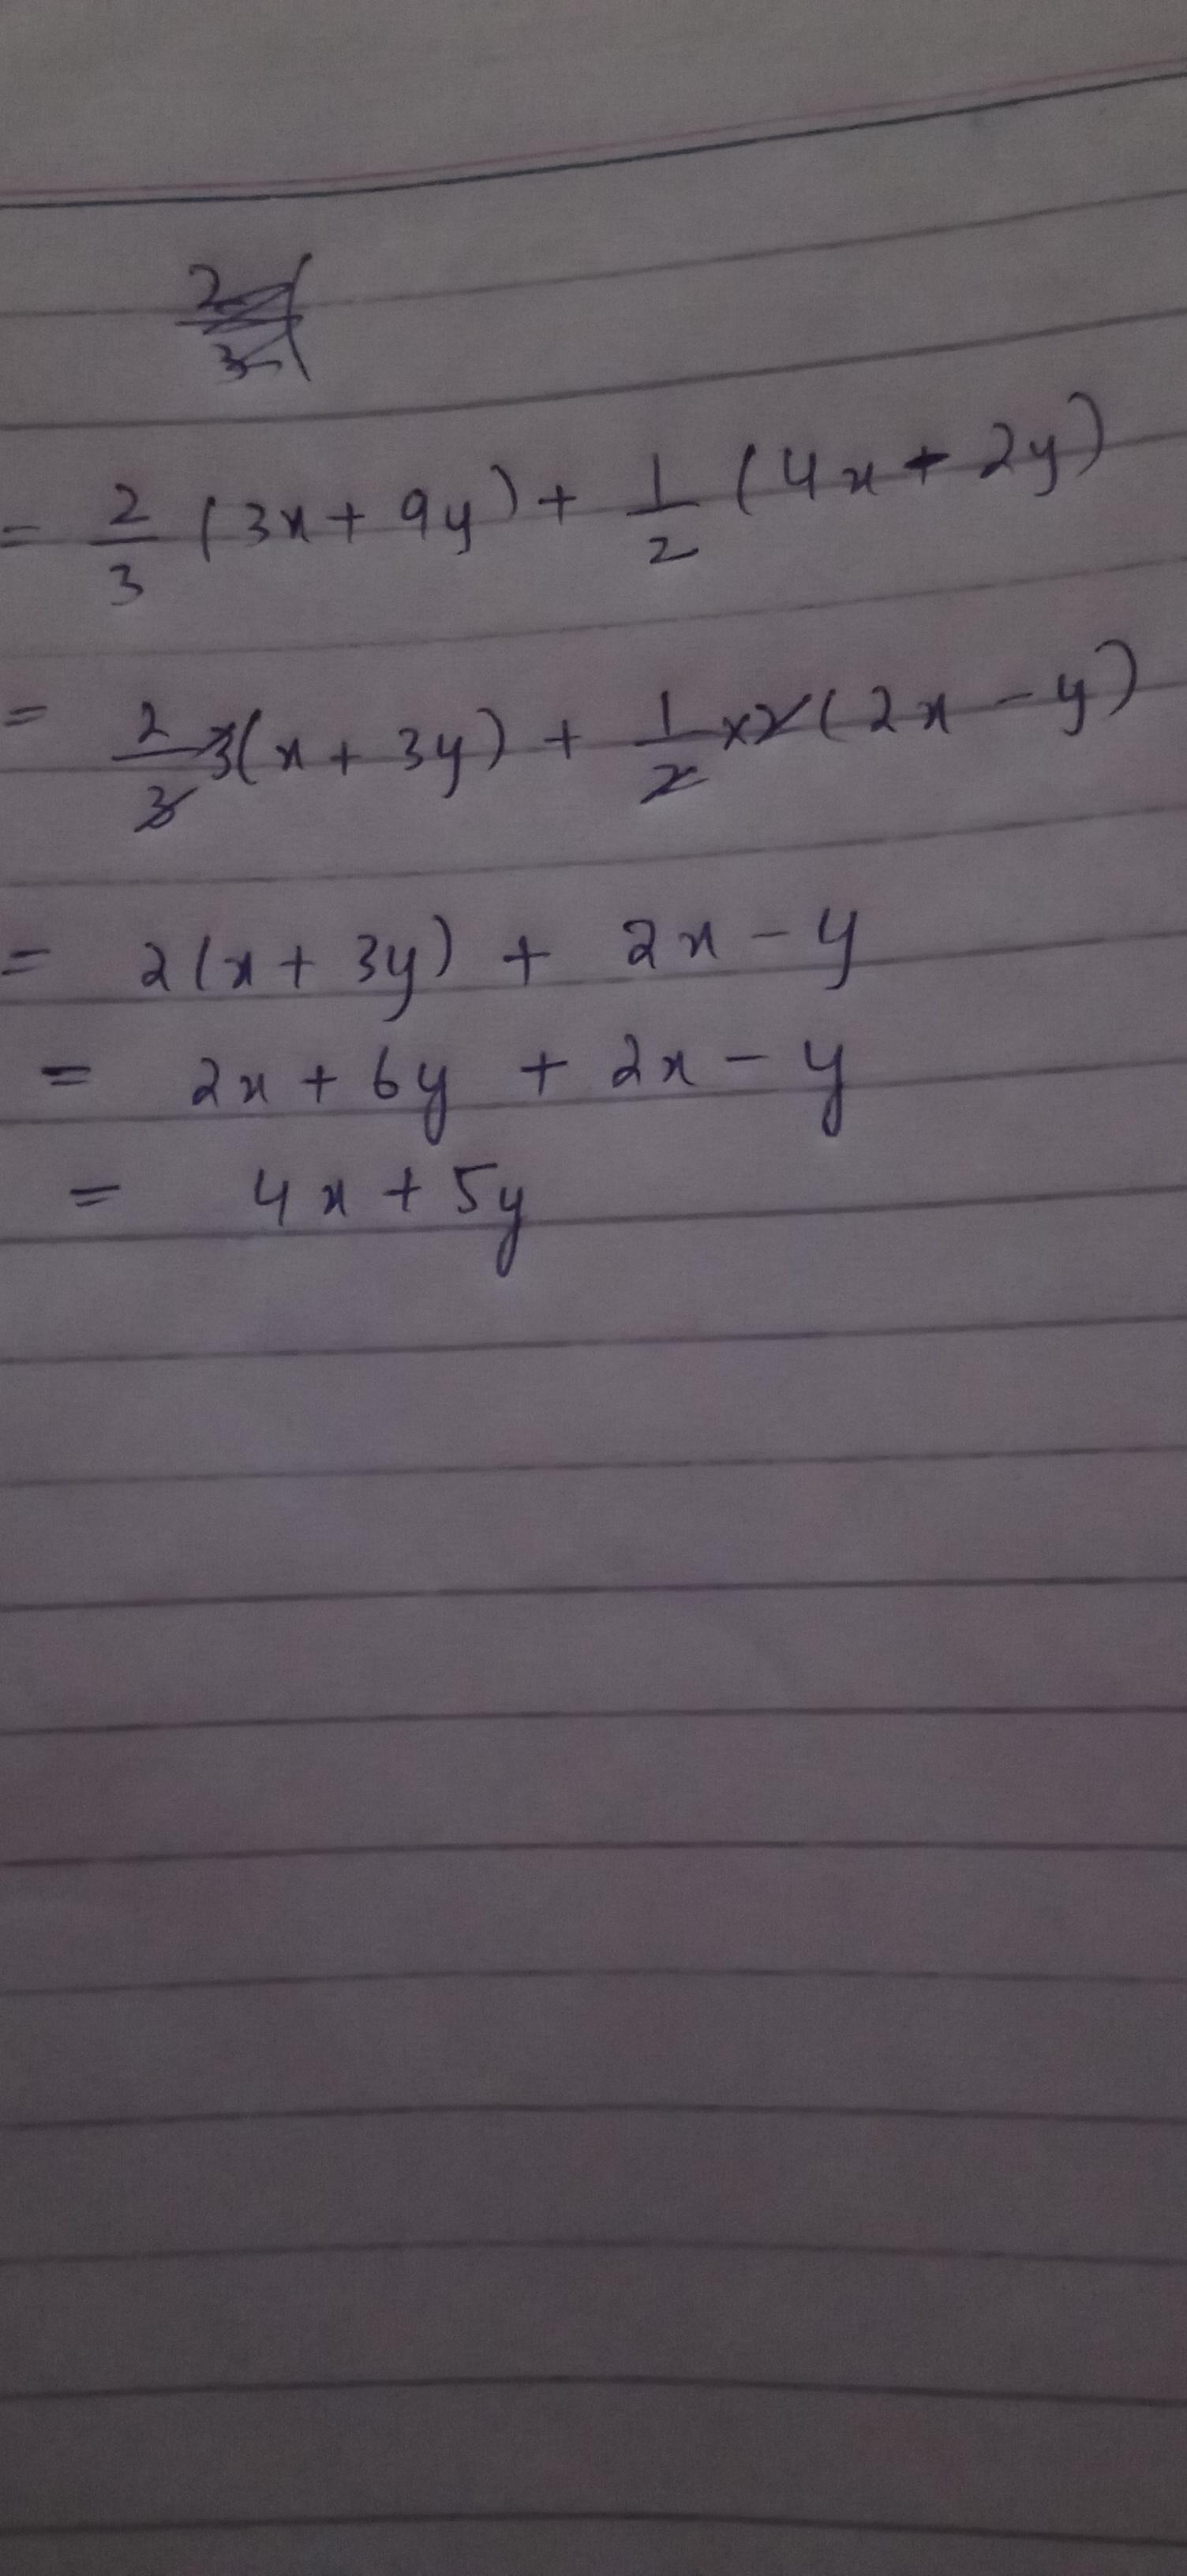 = 2/3 (3x + 9y) + 1/2 (4x - 2y)
= 2/3 3(x + 3y) + 1/2 x 2 (2x - y)
= 2(x + 3y) + 2x - y
= 2x + 6y + 2x - y
= 4x + 5y